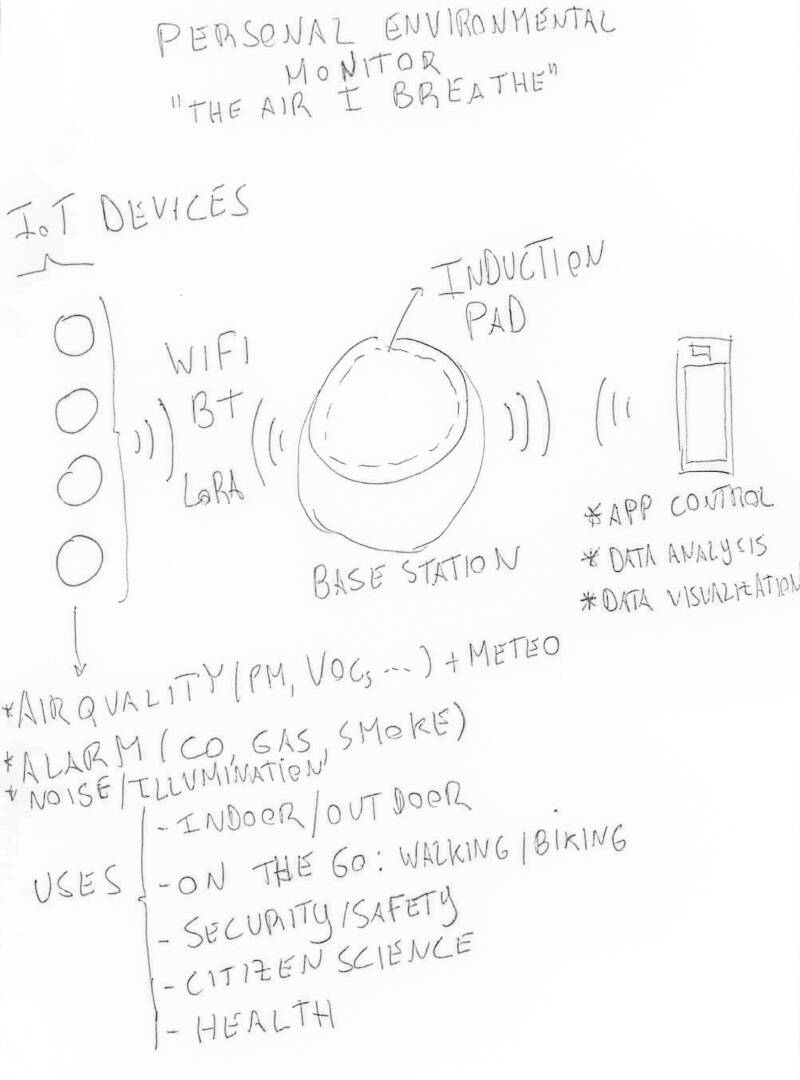 PERSONAL ENVIRONMENTAL
MONITOR
"THE AIR I BREATHE"
IoT DEVICES
INDUCTION
PAD
WIFI
BT
LoRA
BASE STATION
* APP CONTROL
* DATA ANALYSIS
* DATA VISUALIZATION
* AIR QUALITY (PM, VOCs, ...) + METEO
* ALARM (CO, GAS, SMOKE)
* NOISE/ILLUMINATION
USES
- INDOOR/OUTDOOR
- ON THE GO: WALKING/BIKING
- SECURITY/SAFETY
- CITIZEN SCIENCE
- HEALTH